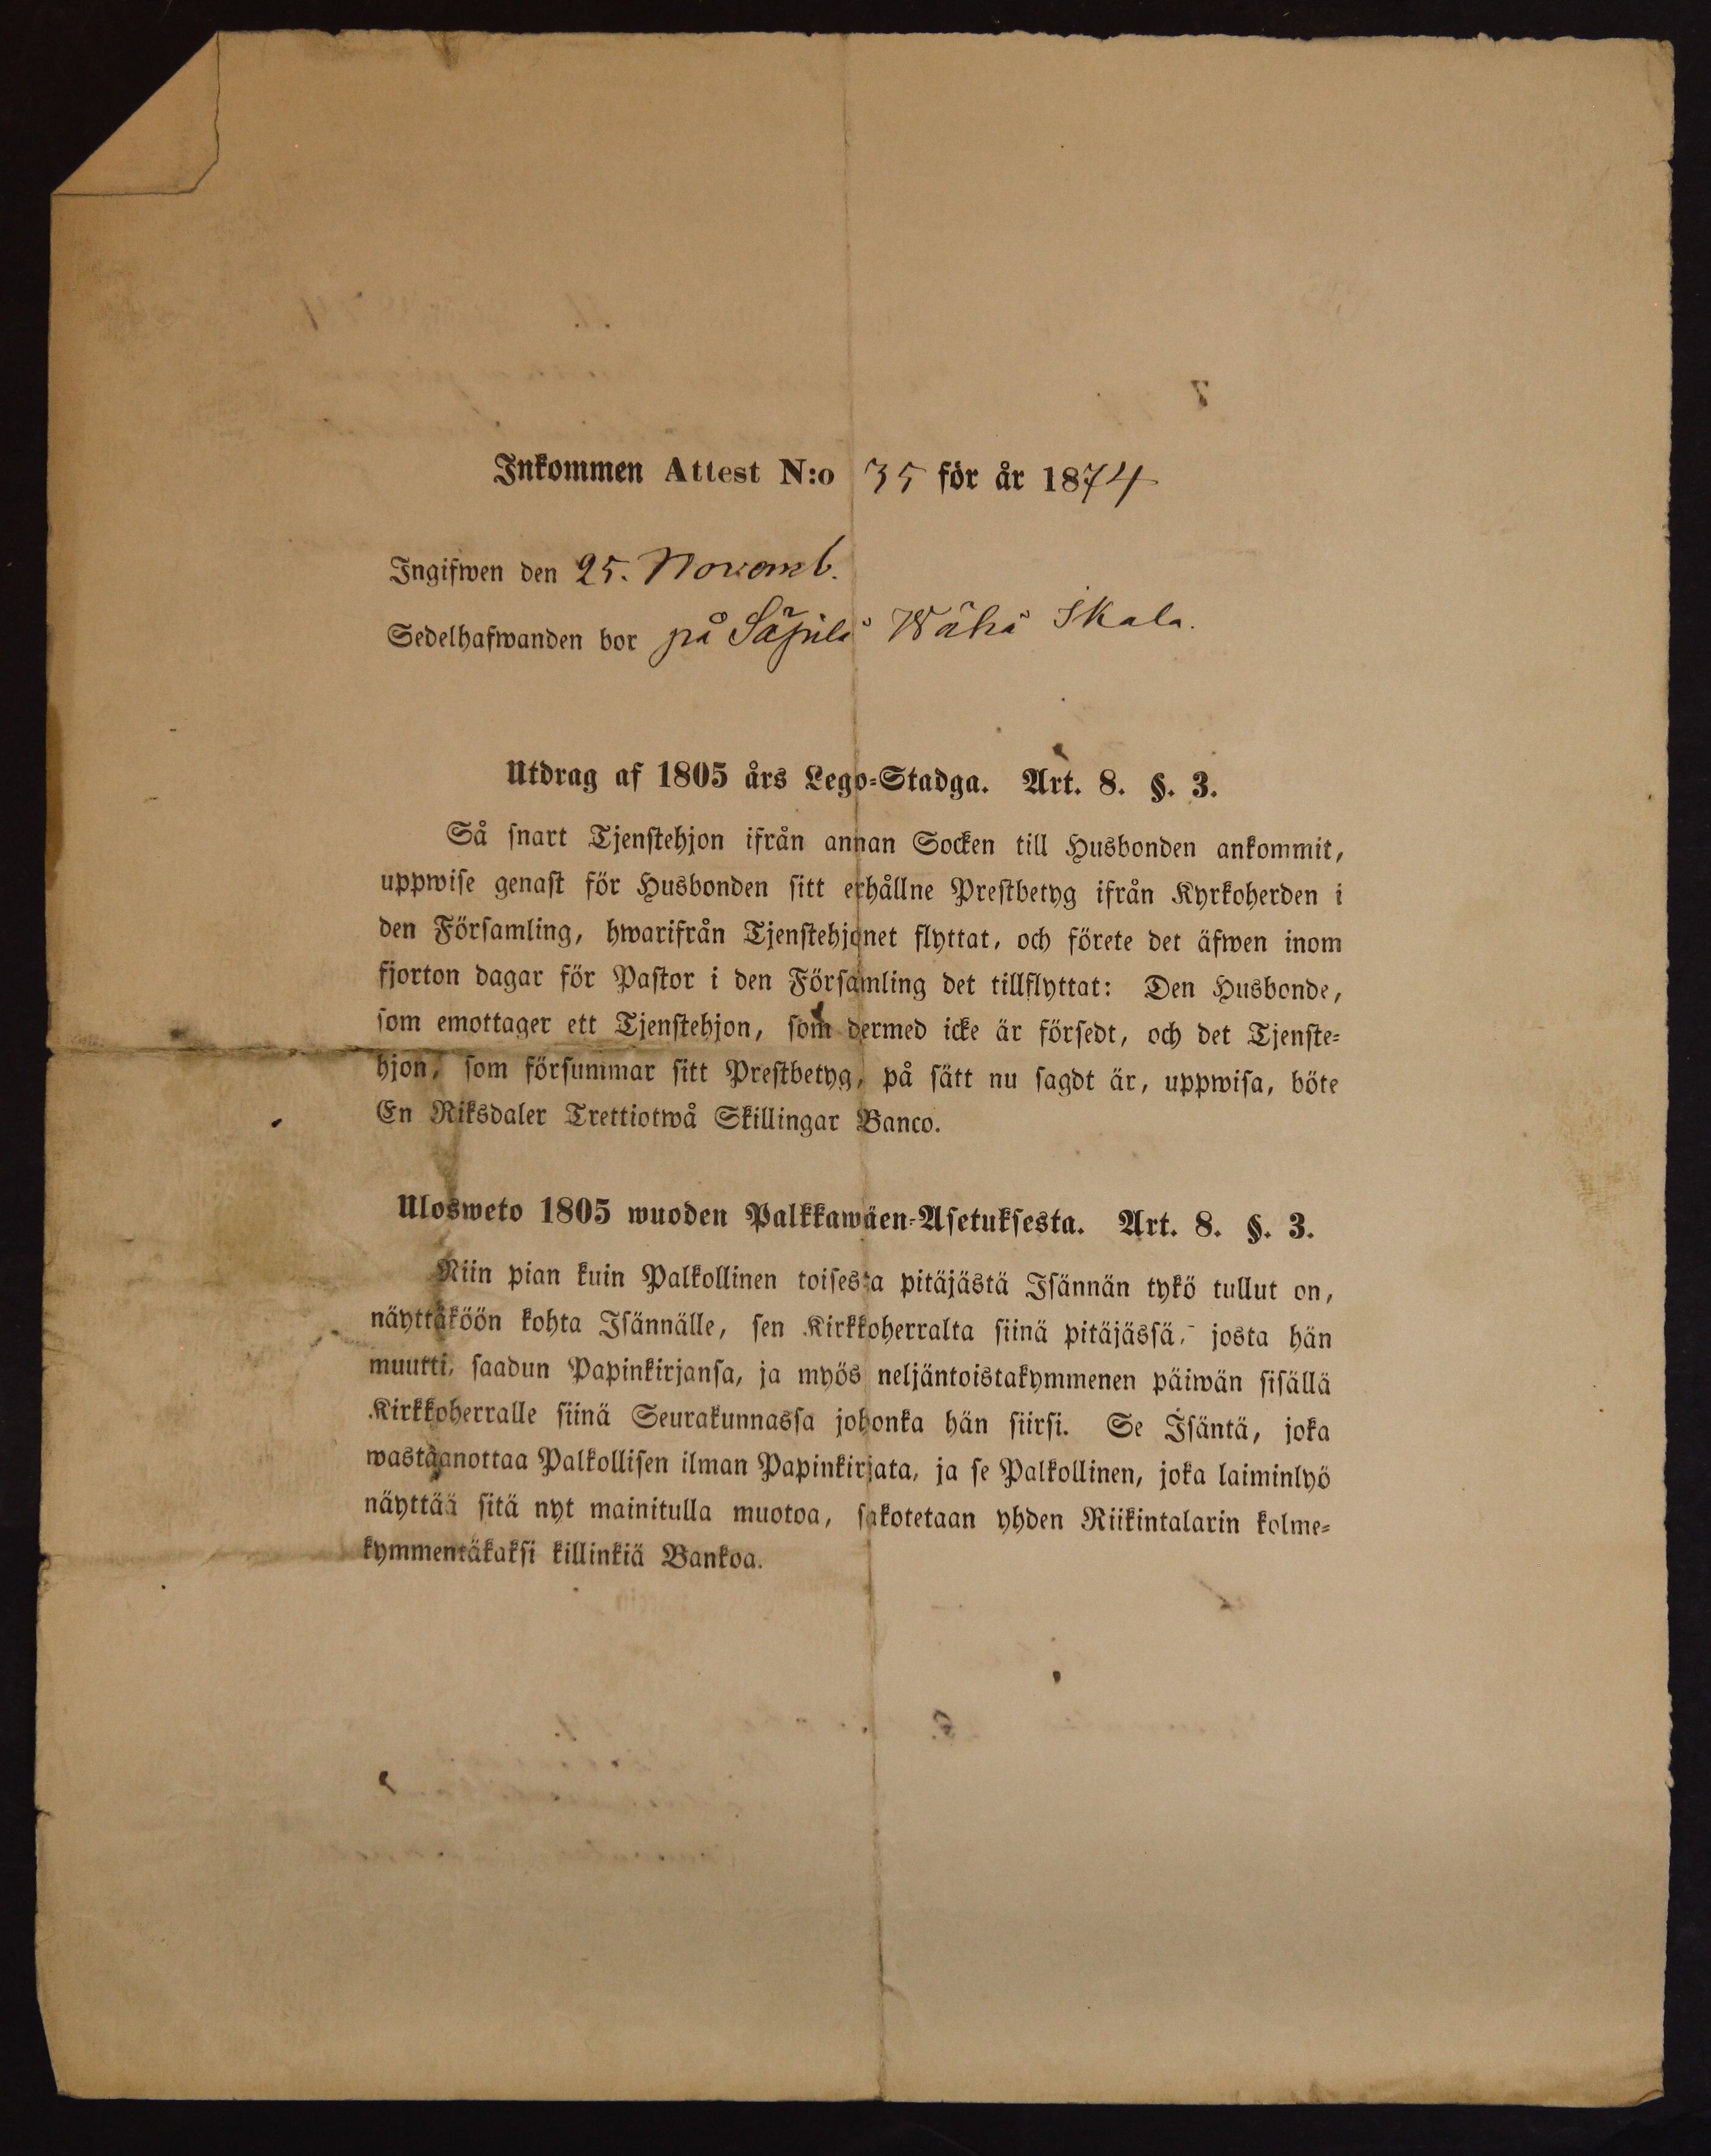 Inkommen Attest N:o 35 för år 1874
Ingifwen den 25. Novemb.
Sedelhafwanden bor på Säpilä Wähä Skala.
Utdrag af 1805 års Lego-Stadga. Art. 8. §. 3.
Så snart Tjenstehjon ifrån annan Socken till Husbonden ankommit,
uppwise genast för Husbonden sitt erhållne Prestbetyg ifrån Kyrkoherden i
den Församling, hwarifrån Tjenstehjonet flyttat, och förete det äfwen inom
fjorton dagar för Pastor i den Församling det tillflyttat: Den Husbonde,
som emottager ett Tjenstehjon, som dermed icke är försedt, och det Tjenste-
hjon, som försummar sitt Prestbetyg, på sätt nu sagdt är, uppwisa, böte
En Riksdaler Trettiotwå Skillingar Banco.
Ulosweto 1805 wuoden Palkkawäen-Asetuksesta. Art. 8. §. 3.
Niin pian kuin Palkollinen toisesta pitäjästä Isännän tykö tullut on,
näyttäköön kohta Isännälle, sen Kirkkoherralta siinä pitäjässä, josta hän
muutti, saadun Papinkirjansa, ja myös neljäntoistakymmenen päiwän sisällä
Kirkkoherralle siinä Seurakunnassa johonka hän siirsi. Se Isäntä, joka
wastaanottaa Palkollisen ilman Papinkirjata, ja se Palkollinen, joka laiminlyö
näyttää sitä nyt mainitulla muotoa, sakotetaan yhden Riikintalarin kolme-
kymmentäkaksi killinkiä Bankoa.